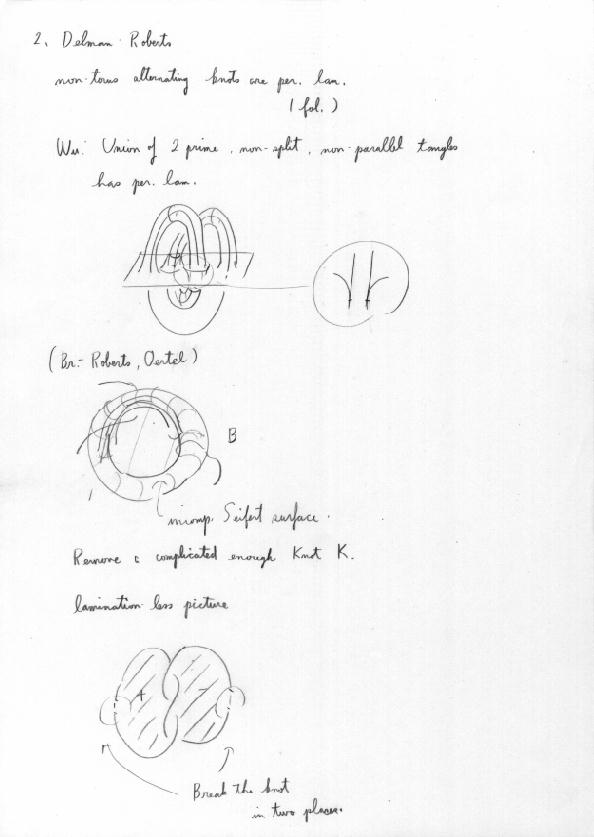 2. Delman - Roberts
non-torus alternating knots are per. lam.
( fol. )
Wu: Union of 2 prime, non-split, non-parallel tangles
has per. lam.
(Br.- Roberts, Oertel)
B
incomp. Seifert surface.
Remove a complicated enough Knot K.
lamination less picture
+
-
Break the knot
in two places.